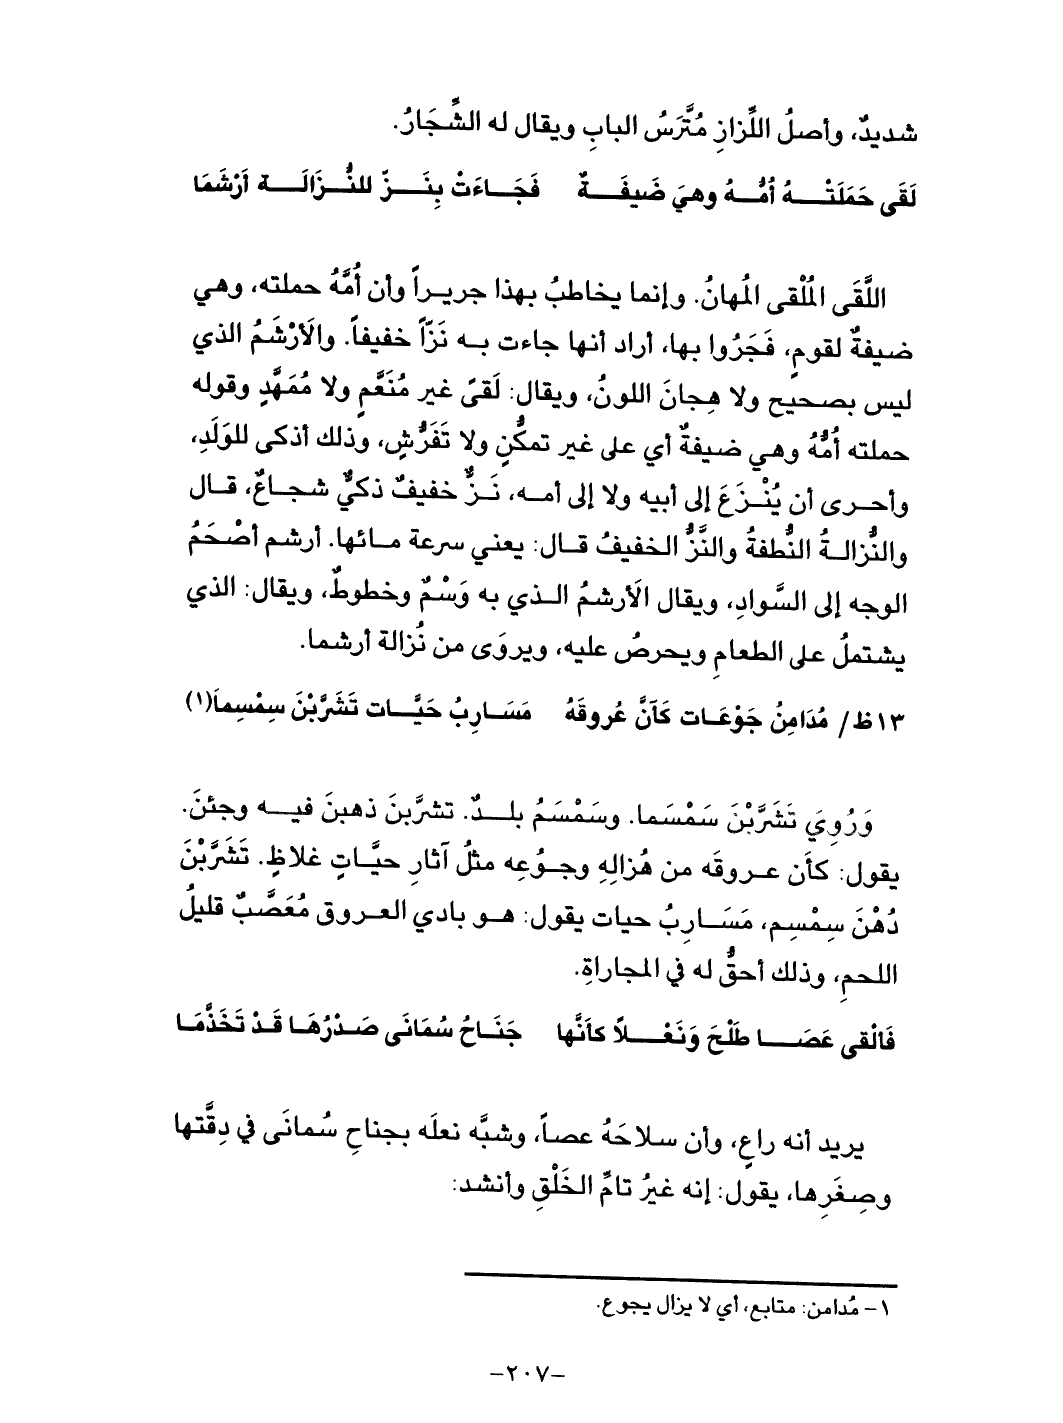 شديدٌ، وأصلُ اللِّزازِ مُتَّرَسُ البابِ ويقال له الشِّجَارُ.
لَقَى حَمَلَتْـــهُ أُمُّـــهُ وهيَ ضَيفَـــةٌ    فَجَـــاءَتْ بِنَـــزّ للنُّـــزَالَـــة أرْشَمَا
اللَّقَى المُلْقى المُهانُ. وإنما يخاطبُ بهذا جريراً وأن أُمَّهُ حملته، وهي
ضيفةٌ لقومٍ، فَجَرُوا بها، أراد أنها جاءت بـه نَزّاً خفيفاً. والَأرْشَمُ الذي
ليس بصحيح ولا هِجانَ اللونُ، ويقال: لَقىً غير مُنَعَّمٍ ولا مُمَهَّدٍ وقوله
حملته أُمُّهُ وهـي ضيفةٌ أي على غير تمكُّنٍ ولا تَفَرُّشٍ، وذلك أذكى للوَلَدِ،
وأحـرى أن يُنْـزَعَ إلى أبيه ولا إلى أمـه، نَـزٌّ خفيفٌ ذكيٌّ شجـاعٌ، قـال
والنُّزالـةُ النُّطفةُ والنَّزُّ الخفيفُ قـال: يعني سرعة مـائها. أرشم أصْحَمُ
الوجه إلى السَّوادِ، ويقال الَأرشمُ الـذي به وَسْمٌ وخطوطٌ، ويقال: الذي
يشتملُ على الطعامِ ويحرصُ عليه، ويروَى من نُزالة أرشما.
١٣ظ/ مُدَامِنُ جَوْعَـات كَأنَّ عُروقَهُ    مَسَـارِبُ حَيَّـات تَشَرَّبْنَ سِمْسِماَ(١)
وَرُوِيَ تَشَرَّبْنَ سَمْسَما. وسَمْسَمُ بلـدٌ. تشرَّبنَ ذهبنَ فيـه وجئنَ.
يقول: كأَن عـروقَه من هُزالِهِ وجـوُعِه مثلُ آثارِ حيَّـاتٍ غلاظٍ. تَشَرَّبْنَ
دُهْنَ سِمْسِمٍ، مَسَـارِبُ حيات يقول: هـو بادي العـروق مُعَصَّبٌ قليلُ
اللحمِ، وذلك أحقُّ له في المجاراةِ.
فَالْقى عَصَـــا طَلْحَ وَنَعْـــلاً كأنَّها    جَنَـاحُ سُمَانَى صَـدْرُهَـا قَـدْ تَخَذَّمَـا
يريد أنه راعٍ، وأن سلاحَهُ عصاً، وشبَّه نعلَه بجناحِ سُمانَى في دِقَّتها
وصِغَرِها، يقول: إنه غيرُ تامِّ الخَلْقِ وأنشد:
١- مُدامن: متابع، أي لا يزال يجوع.
-٢٠٧-